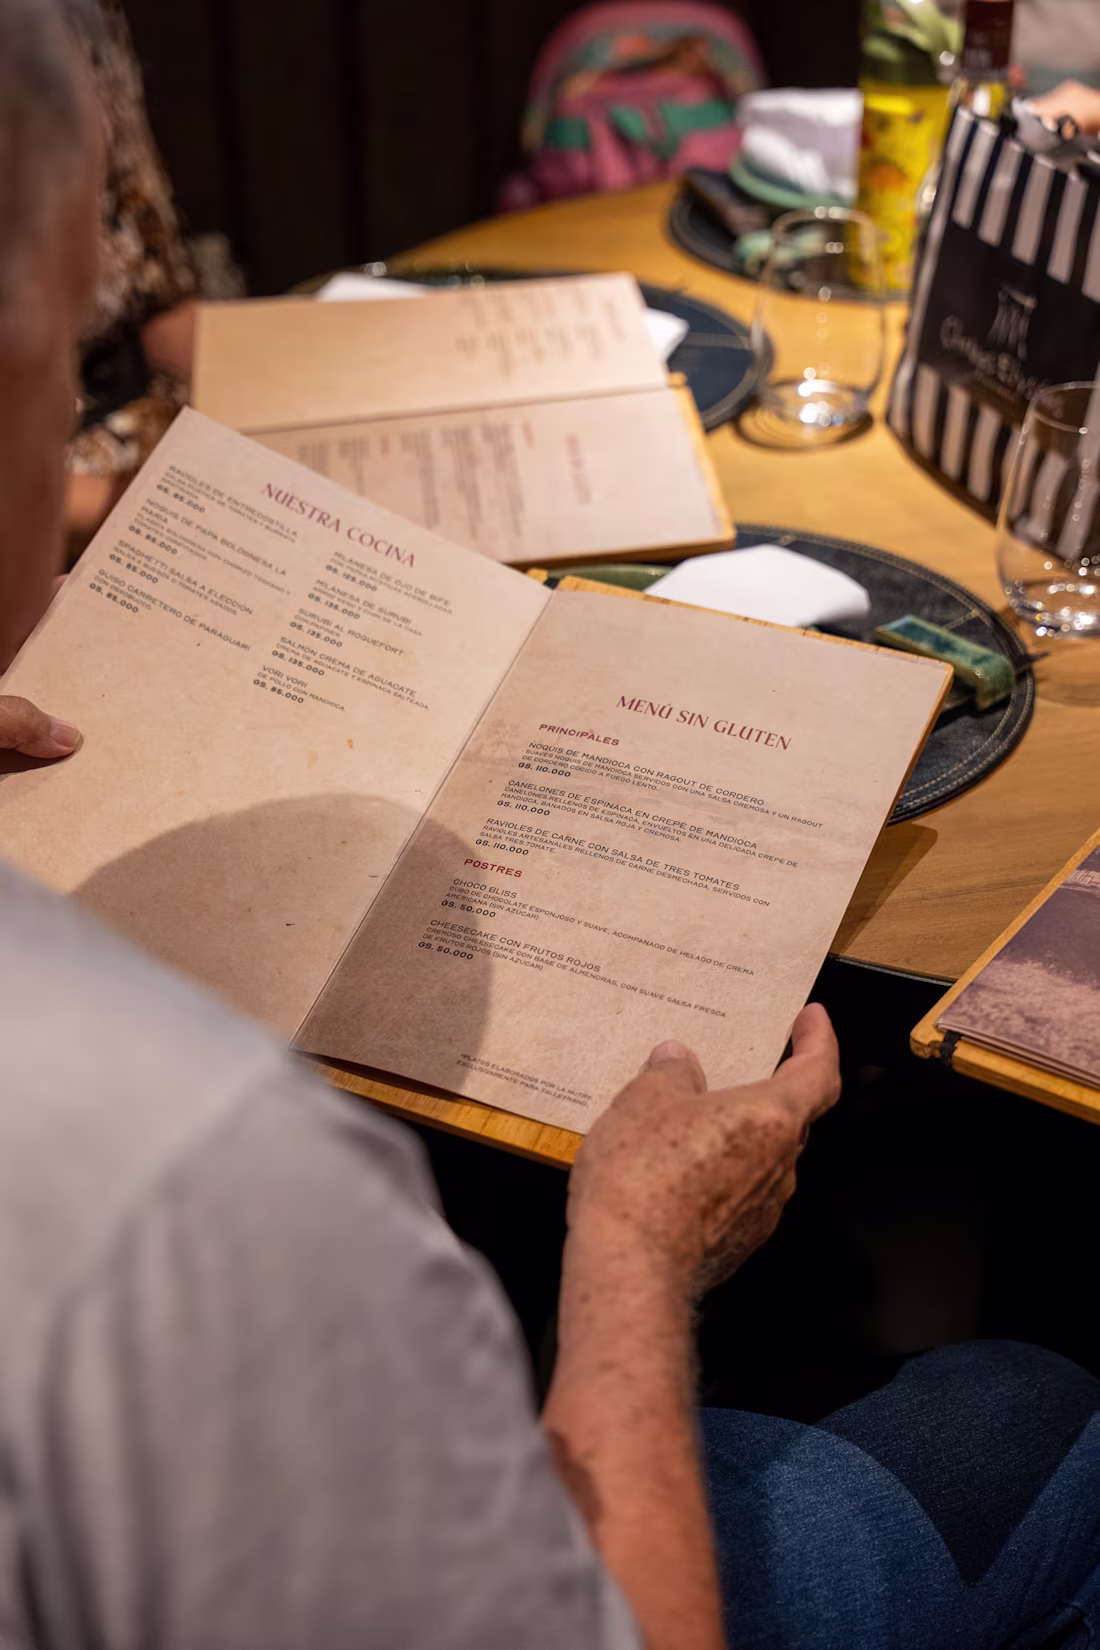 NUESTRA COCINA
RAVIOLES DE ENTRECOSTILLA
SALSA RÚSTICA DE TOMATES Y BURRATA
GS. 85.000
ÑOQUIS DE PAPA BOLOGNESA LA
MARÍA
CLÁSICA BOLOGNESA CON CHORIZO TOSCANO Y
TOMATES CONFITADOS.
GS. 95.000
SPAGHETTI SALSA A ELECCIÓN
SALSA 4 QUESOS O TOMATES ASADOS.
GS. 85.000
GUISO CARRETERO DE PARAGUARI
CON OSSOBUCO.
GS. 65.000
MILANESA DE OJO DE BIFE
CON PAPAS RÚSTICAS
GS. 125.000
MILANESA DE SURUBI
ARROZ KESÚ Y CHIPS DE LA CASA.
GS. 135.000
SURUBÍ AL ROQUEFORT
CON PAPINES.
GS. 135.000
SALMÓN CREMA DE AGUACATE
CREMA DE AGUACATE Y ESPINACA SALTEADA.
GS. 135.000
VORI VORI
DE POLLO CON MANDIOCA.
GS. 85.000
MENÚ SIN GLUTEN
PRINCIPALES
ÑOQUIS DE MANDIOCA CON RAGOUT DE CORDERO
SUAVES ÑOQUIS DE MANDIOCA SERVIDOS CON UNA SALSA CREMOSA Y UN RAGOUT
DE CORDERO COCIDO A FUEGO LENTO.
GS. 110.000
CANELONES DE ESPINACA EN CREPE DE MANDIOCA
CANELONES RELLENOS DE ESPINACA, ENVUELTOS EN UNA DELICADA CREPE DE
MANDIOCA, BAÑADOS EN SALSA ROJA Y CREMOSA.
GS. 110.000
RAVIOLES DE CARNE CON SALSA DE TRES TOMATES
RAVIOLES ARTESANALES RELLENOS DE CARNE DESMECHADA, SERVIDOS CON
SALSA TRES TOMATE.
GS. 110.000
POSTRES
CHOCO BLISS
CUBO DE CHOCOLATE ESPONJOSO Y SUAVE, ACOMPAÑADO DE HELADO DE CREMA
AMERICANA (SIN AZÚCAR)
GS. 50.000
CHEESECAKE CON FRUTOS ROJOS
CREMOSO CHEESECAKE CON BASE DE ALMENDRAS, CON SUAVE SALSA FRESCA
DE FRUTOS ROJOS (SIN AZÚCAR)
GS. 50.000
*PLATOS ELABORADOS POR LA NUTRI
EXCLUSIVAMENTE PARA TALLEYRAND.